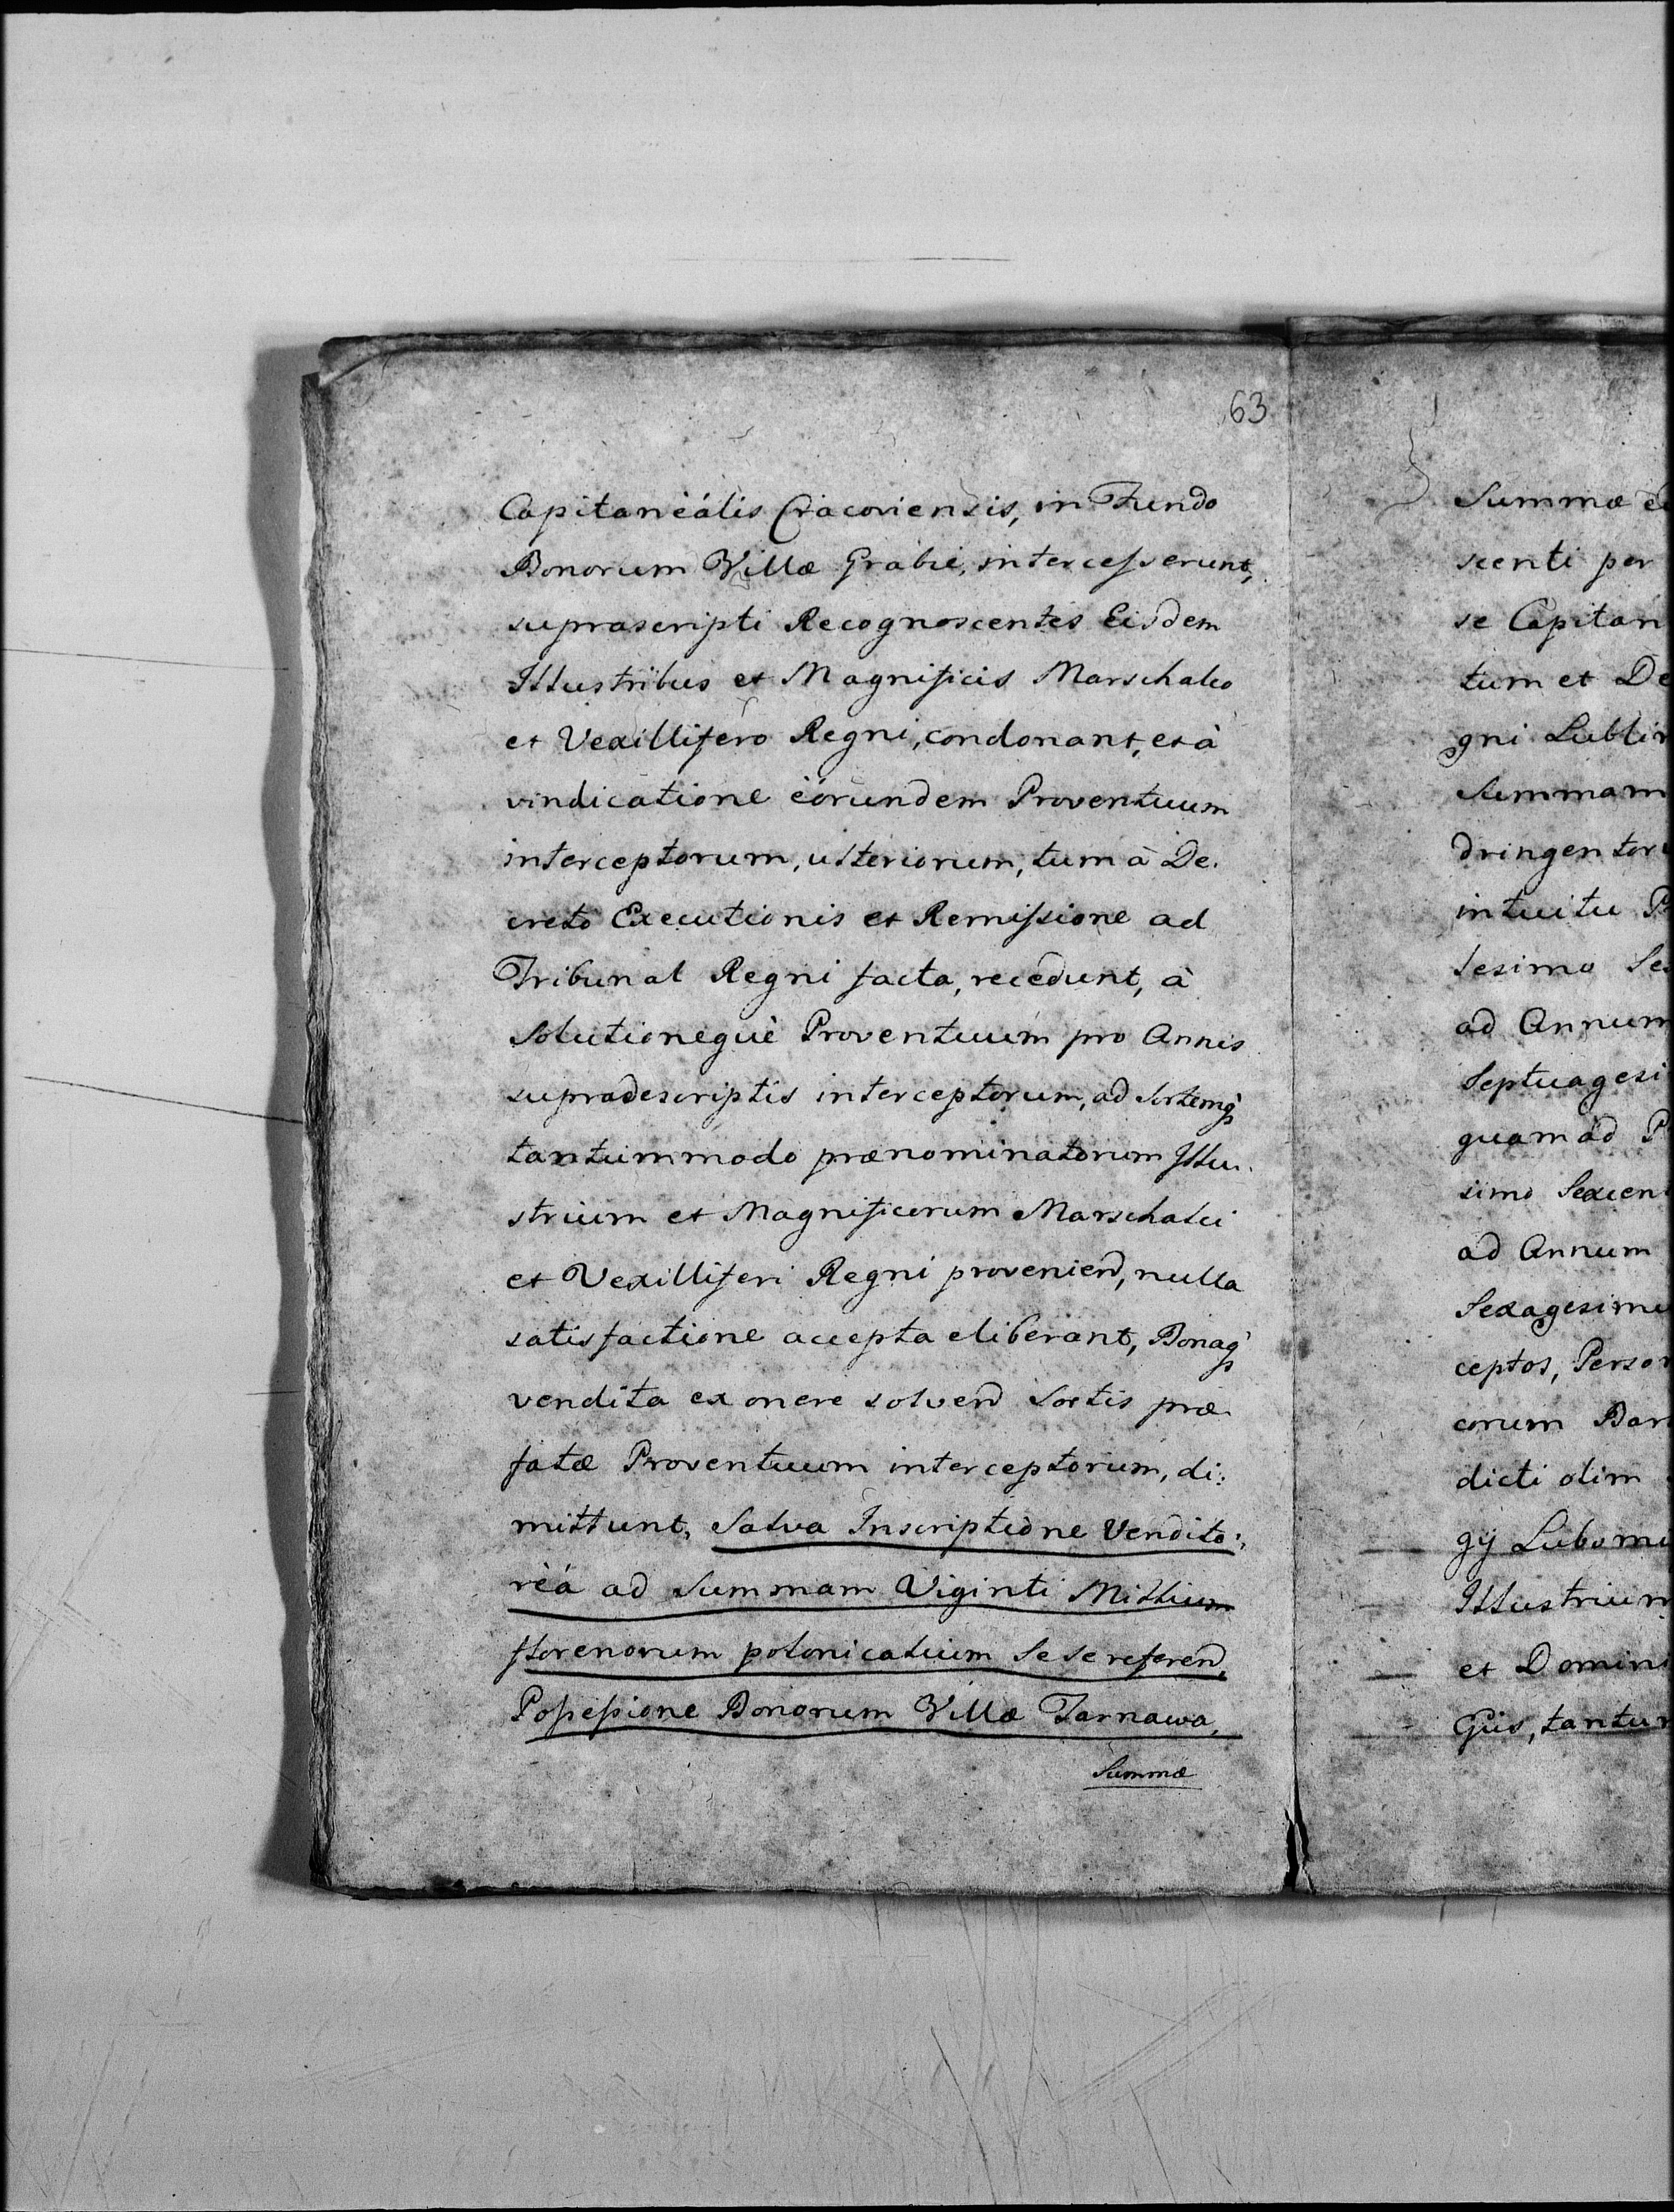 63
Capitanëális Cracoviensis, in Fundo
Bonorum Villæ Grabie, intercesserunt,
suprascripti Recognoscentes Eisdem
Illustribus et Magnificis Marschalco
et Vexillifero Regni, condonant, et à
vindicatione ëórundem Proventuum
interceptorum, ulteriorum, tum à De.
creto Executionis et Remissione ad
Tribunal Regni facta, recedunt, à
Solutionequè Proventuum pro Annis
supradescriptis interceptorum, ad Sortemq̀
tantummodo prænominatorum Illu.
strium et Magnificorum Marschalci
et Vexilliferi Regni proveniend, nulla
satisfactione accepta eliberant, Bonaq̀
vendita ex onere solvend Sortis præ.
fatæ Proventuum interceptorum, di:
mittunt, Salva Inscriptione Vendito:
rëá ad Summam Viginti Millium
florenorum polonicalium Se se referend,
Possessione Bonorum Villæ Tarnawa,
Summæ
Summæ
scenti per
se Capitan
tum et De
gni Lublin
Summam
dringentor
intuitu P
sesimo Se
ad Annum
Septuagesi
quam ad P
simo Sexcen
ad Annum
Sexagesim
ceptos, Person
corum Bar
dicti olim
gÿ Lubomi
Illustrium
et Domini
Gÿs, tantum